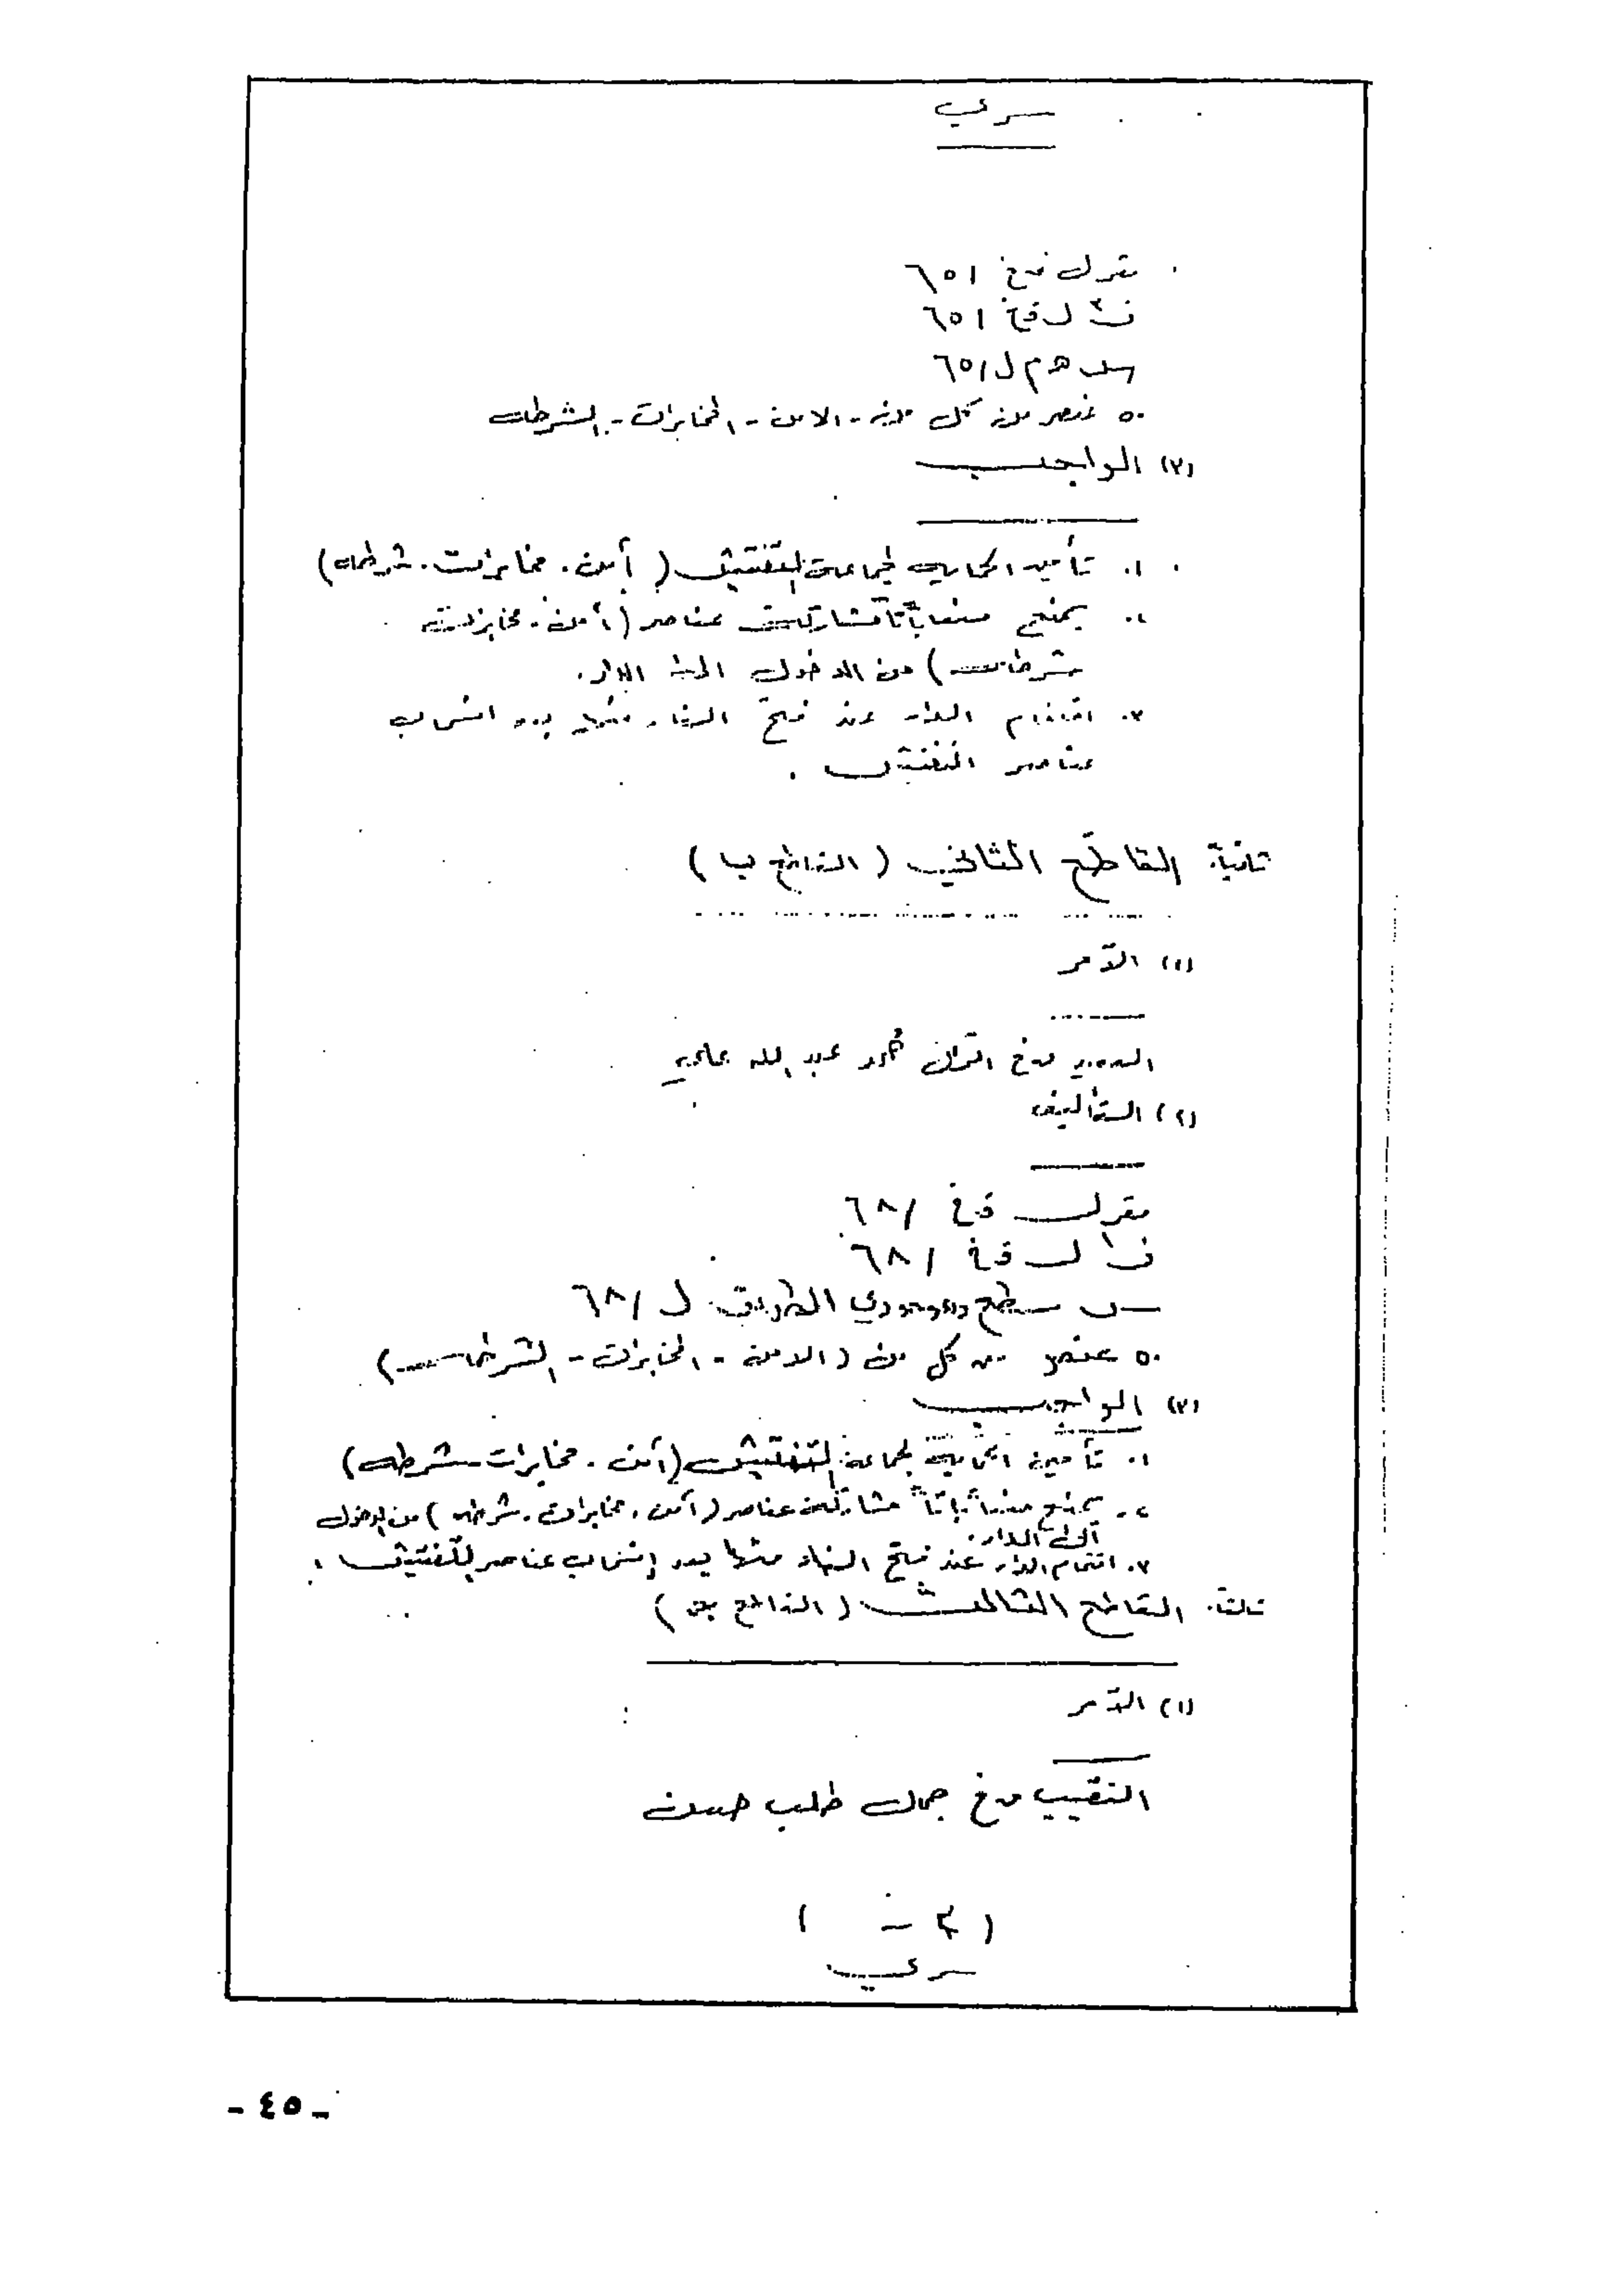 سري
مقر ل ق خ / ٦٥١
ف ٣ ل ق خ / ٦٥١
س هـ م ل / ٦٥١
٥ عنصر من كل من - الامن - المخابرات - الشرطة
(٣) الواجب
١. تأمين الحماية لجماعة التفتيش ( أمن . مخابرات . شرطة )
٢. يمنع منعاً باتاً مشاركة عناصر ( أمن . مخابرات
شرطة ) من الدخول الى الدار .
٣. اقتحام الدار عند فتح النار منها بعد انسحاب
عناصر التفتيش .
ثانية . القاطع الثاني ( القاطع ب )
(١) الآمر
ق خ الركن محمد عبد الله
(٢) التأليف
مقر ل ق خ / ٦٨
ف ١ ل ق خ / ٦٨
س الطريق ل / ٦٨
٥ عنصر من كل من ( الامن - المخابرات - الشرطة )
(٣) الواجب
١. تأمين الحماية لجماعة التفتيش ( أمن . مخابرات - شرطة )
٢. يمنع منعاً باتاً مشاركة عناصر ( أمن . مخابرات . شرطة ) من الدخول
الى الدار .
٣. اقتحام الدار عند فتح النار منها بعد إنسحاب عناصر التفتيش .
ثالثة . القاطع الثالث ( القاطع ج )
(١) الآمر
النقيب ق خ جمال طلب حسن
( ٣ - )
سري
- ٤٥ -